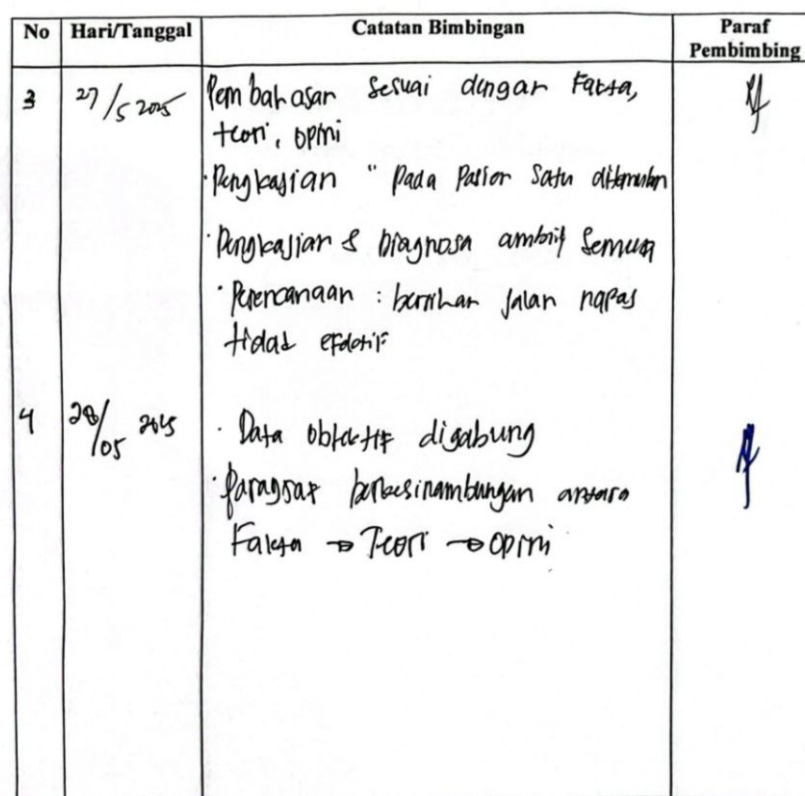 No Hari/Tanggal Catatan Bimbingan Paraf Pembimbing
3 27/5 2025 Pembahasan sesuai dengan Fakta,
teori, opini
· Pengkajian " Pada Pasien Satu ditemukan
· Pengkajian & Diagnosa ambil semua
· Perencanaan : bersihan jalan napas
tidak efektif
4 28/05 2025 · Data objektif digabung
· Paragraf berkesinambungan antara
Fakta → Teori → opini